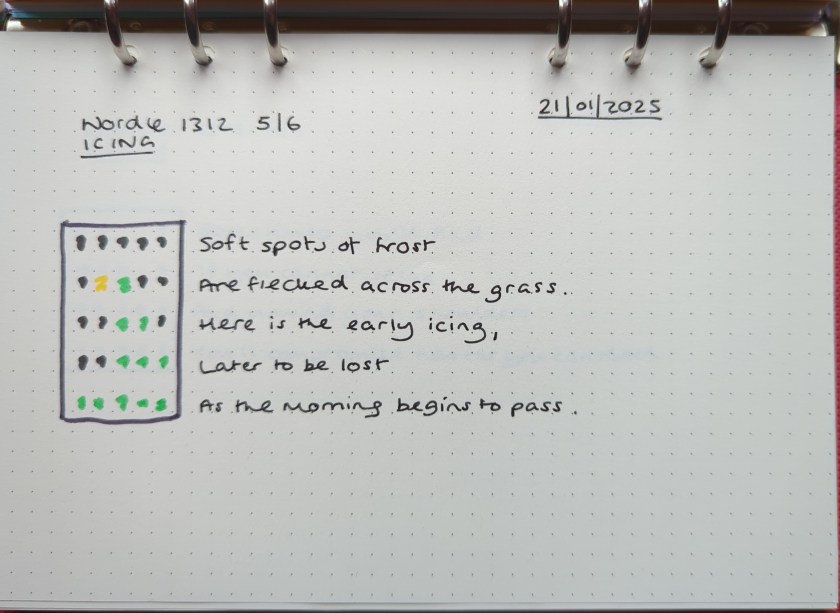 Wordle 1312 5/6
ICING
21/01/2025
Soft spots of frost
Are flecked across the grass.
Here is the early icing,
Later to be lost
As the morning begins to pass.